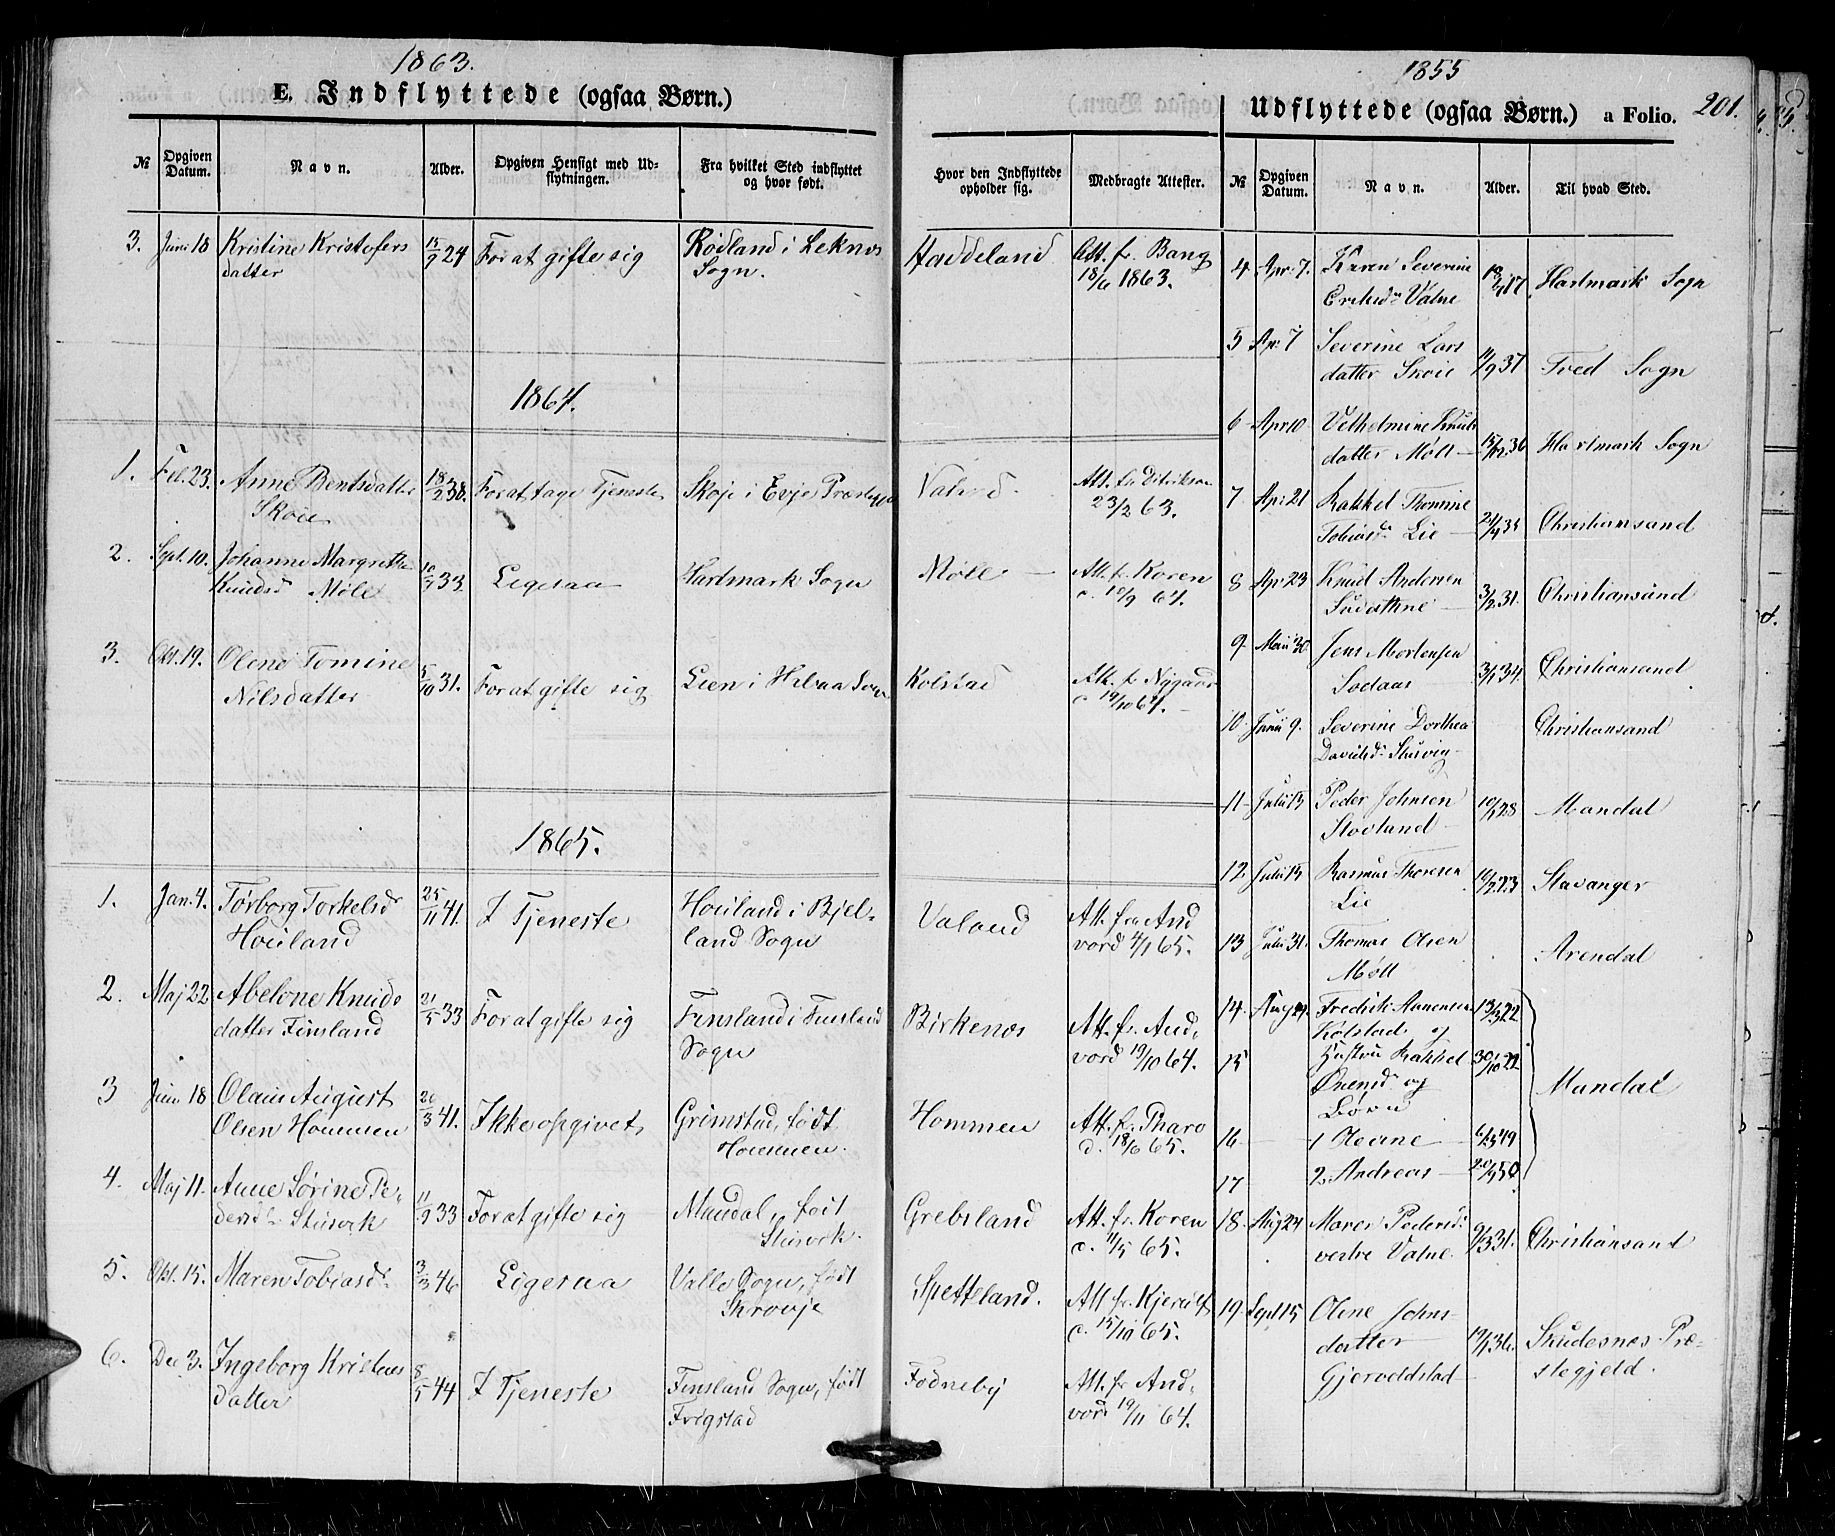 1863.
E. Indflyttede (ogsaa Børn.)
№ Opgiven Datum. Navn. Alder. Opgiven Hensigt med Udflytningen. Fra hvilket Sted indflyttet og hvor født. Hvor den Indflyttede opholder sig. Medbragte Attester.
3. Juni 18 Kristine Kristofers 15/9 24 For at gifte sig Rödland i Leknes Haddeland Att. fr. Bang
datter Sogn. 18/6 1863.
1864.
1. Feb. 23. Anne Berntsdatter 18/2 38. For at tage Tjeneste Skoje i Evje Valand. Att. fr.
Skoie 23/2 63.
2. Sept. 10. Johanne Margrethe 10/9 33. Ligesaa Hartmark Sogn Møll Att. fr. Koren
Knudsd Møll d. 10/9 64.
3. Okt. 19. Olene Tomine 5/10 31. For at gifte sig Lien i Holaa Sogn Kolstad Att. fr. Nygaard
Nilsdatter d. 19/10 64.
1865.
1. Jan. 4. Tørborg Torkelsd 25/11 41. I Tjeneste Houland i Bjel- Valand Att. fra And
Houland land Sogn vord 4/1 65.
2. Maj 22 Abelone Knuds 21/5 33 For at gifte sig Finsland i Finsland Birkenes Att. fr. And,
datter Finsland Sogn vord 19/10 64.
3 Juni 18 Olaus August 20/3 41. Ikke opgivet Grimstad, født Hommen Att. fr. Tharo
Olsen Hommen Hommen. d. 18/6 65.
4. Maj 11. Anne Sørine Pe- 11/9 33 For at gifte sig Mandal, født Grebsland Att. fr. Koren
dersd. Stusvik Stusvik. d. 11/5 65.
5. Okt. 15. Maren Tobiasd. 3/3 46 Ligesaa Valle Sogn, født Spetteland. Att fr. Kjerulf
Skrovje d. 15/10 65.
6. Dec 3. Ingeborg Kristens 8/5 44 I Tjeneste Finsland Sogn, født Fodneby Att. fr. And,
datter Frigstad vord 19/11 64.
1855
Udflyttede (ogsaa Børn.) a Folio. 201.
№ Opgiven Datum. Navn. Alder. Til hvad Sted.
4 Apr. 7. Karen Severine 17 Hartmark Sogn
Valne
5 Apr 7 Severine Lars 11/9 37 Sogn
datter Skoie
6 Apr 10 Vilhelmine Knuds 36 Hartmark Sogn
datter Møll
7 Apr 21 Rakkel Thomine 35 Christiansand
Tobiasd. Lie
8 Apr 23 Knud Andersen 3/2 31. Christiansand
9. Maii 30 Jens Mortensen 34. Christiansand
Sodaas
10. Junii 9. Severine Dorthea Christiansand
Davidsd. Stusvig
11 Julii 13 Peder Johnsen 28 Mandal
Stovland
12. Julii 15 Rasmus Thoresen 23 Stavanger
Lie
13 Julii 31. Thomas Olsen Arendal
Møll
14. Aug 24. Fredrik Aanensen 13/3 22
Kolstad og
15 Hustru Rakkel 30/10 22
og Mandal
Børn
16 1 49
17 2. Andreas 50.
18. Aug 24 Maren Pedersd. 9/3 31. Christiansand
vestre Valne.
19. Sept 15 Oline Johns 36. Skudesnes Præ-
datter stegjeld.